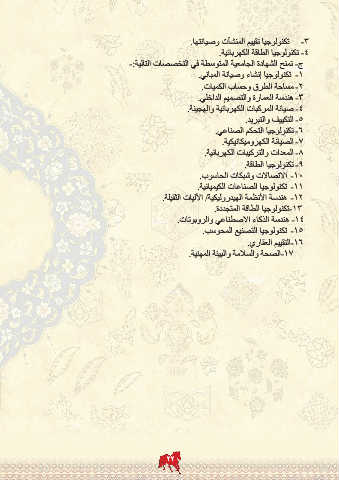 ٣- تكنولوجيا تقييم المنشآت وصيانتها.
٤- تكنولوجيا الطاقة الكهربائية.
ج- تمنح الشهادة الجامعية المتوسطة في التخصصات التالية:-
١- تكنولوجيا إنشاء وصيانة المباني.
٢- مساحة الطرق وحساب الكميات.
٣- هندسة العمارة والتصميم الداخلي.
٤- صيانة المركبات الكهربائية والهجينة.
٥- التكييف والتبريد.
٦- تكنولوجيا التحكم الصناعي.
٧- الصيانة الكهروميكانيكية.
٨- المعدات والتركيبات الكهربائية.
٩- تكنولوجيا الطاقة.
١٠- الاتصالات وشبكات الحاسوب.
١١- تكنولوجيا الصناعات الكيميائية.
١٢- هندسة الأنظمة الهيدروليكية/ الآليات الثقيلة.
١٣- تكنولوجيا الطاقة المتجددة.
١٤- هندسة الذكاء الاصطناعي والروبوتات.
١٥- تكنولوجيا التصنيع المحوسب.
١٦- التقييم العقاري.
١٧- الصحة والسلامة والبيئة المهنية.